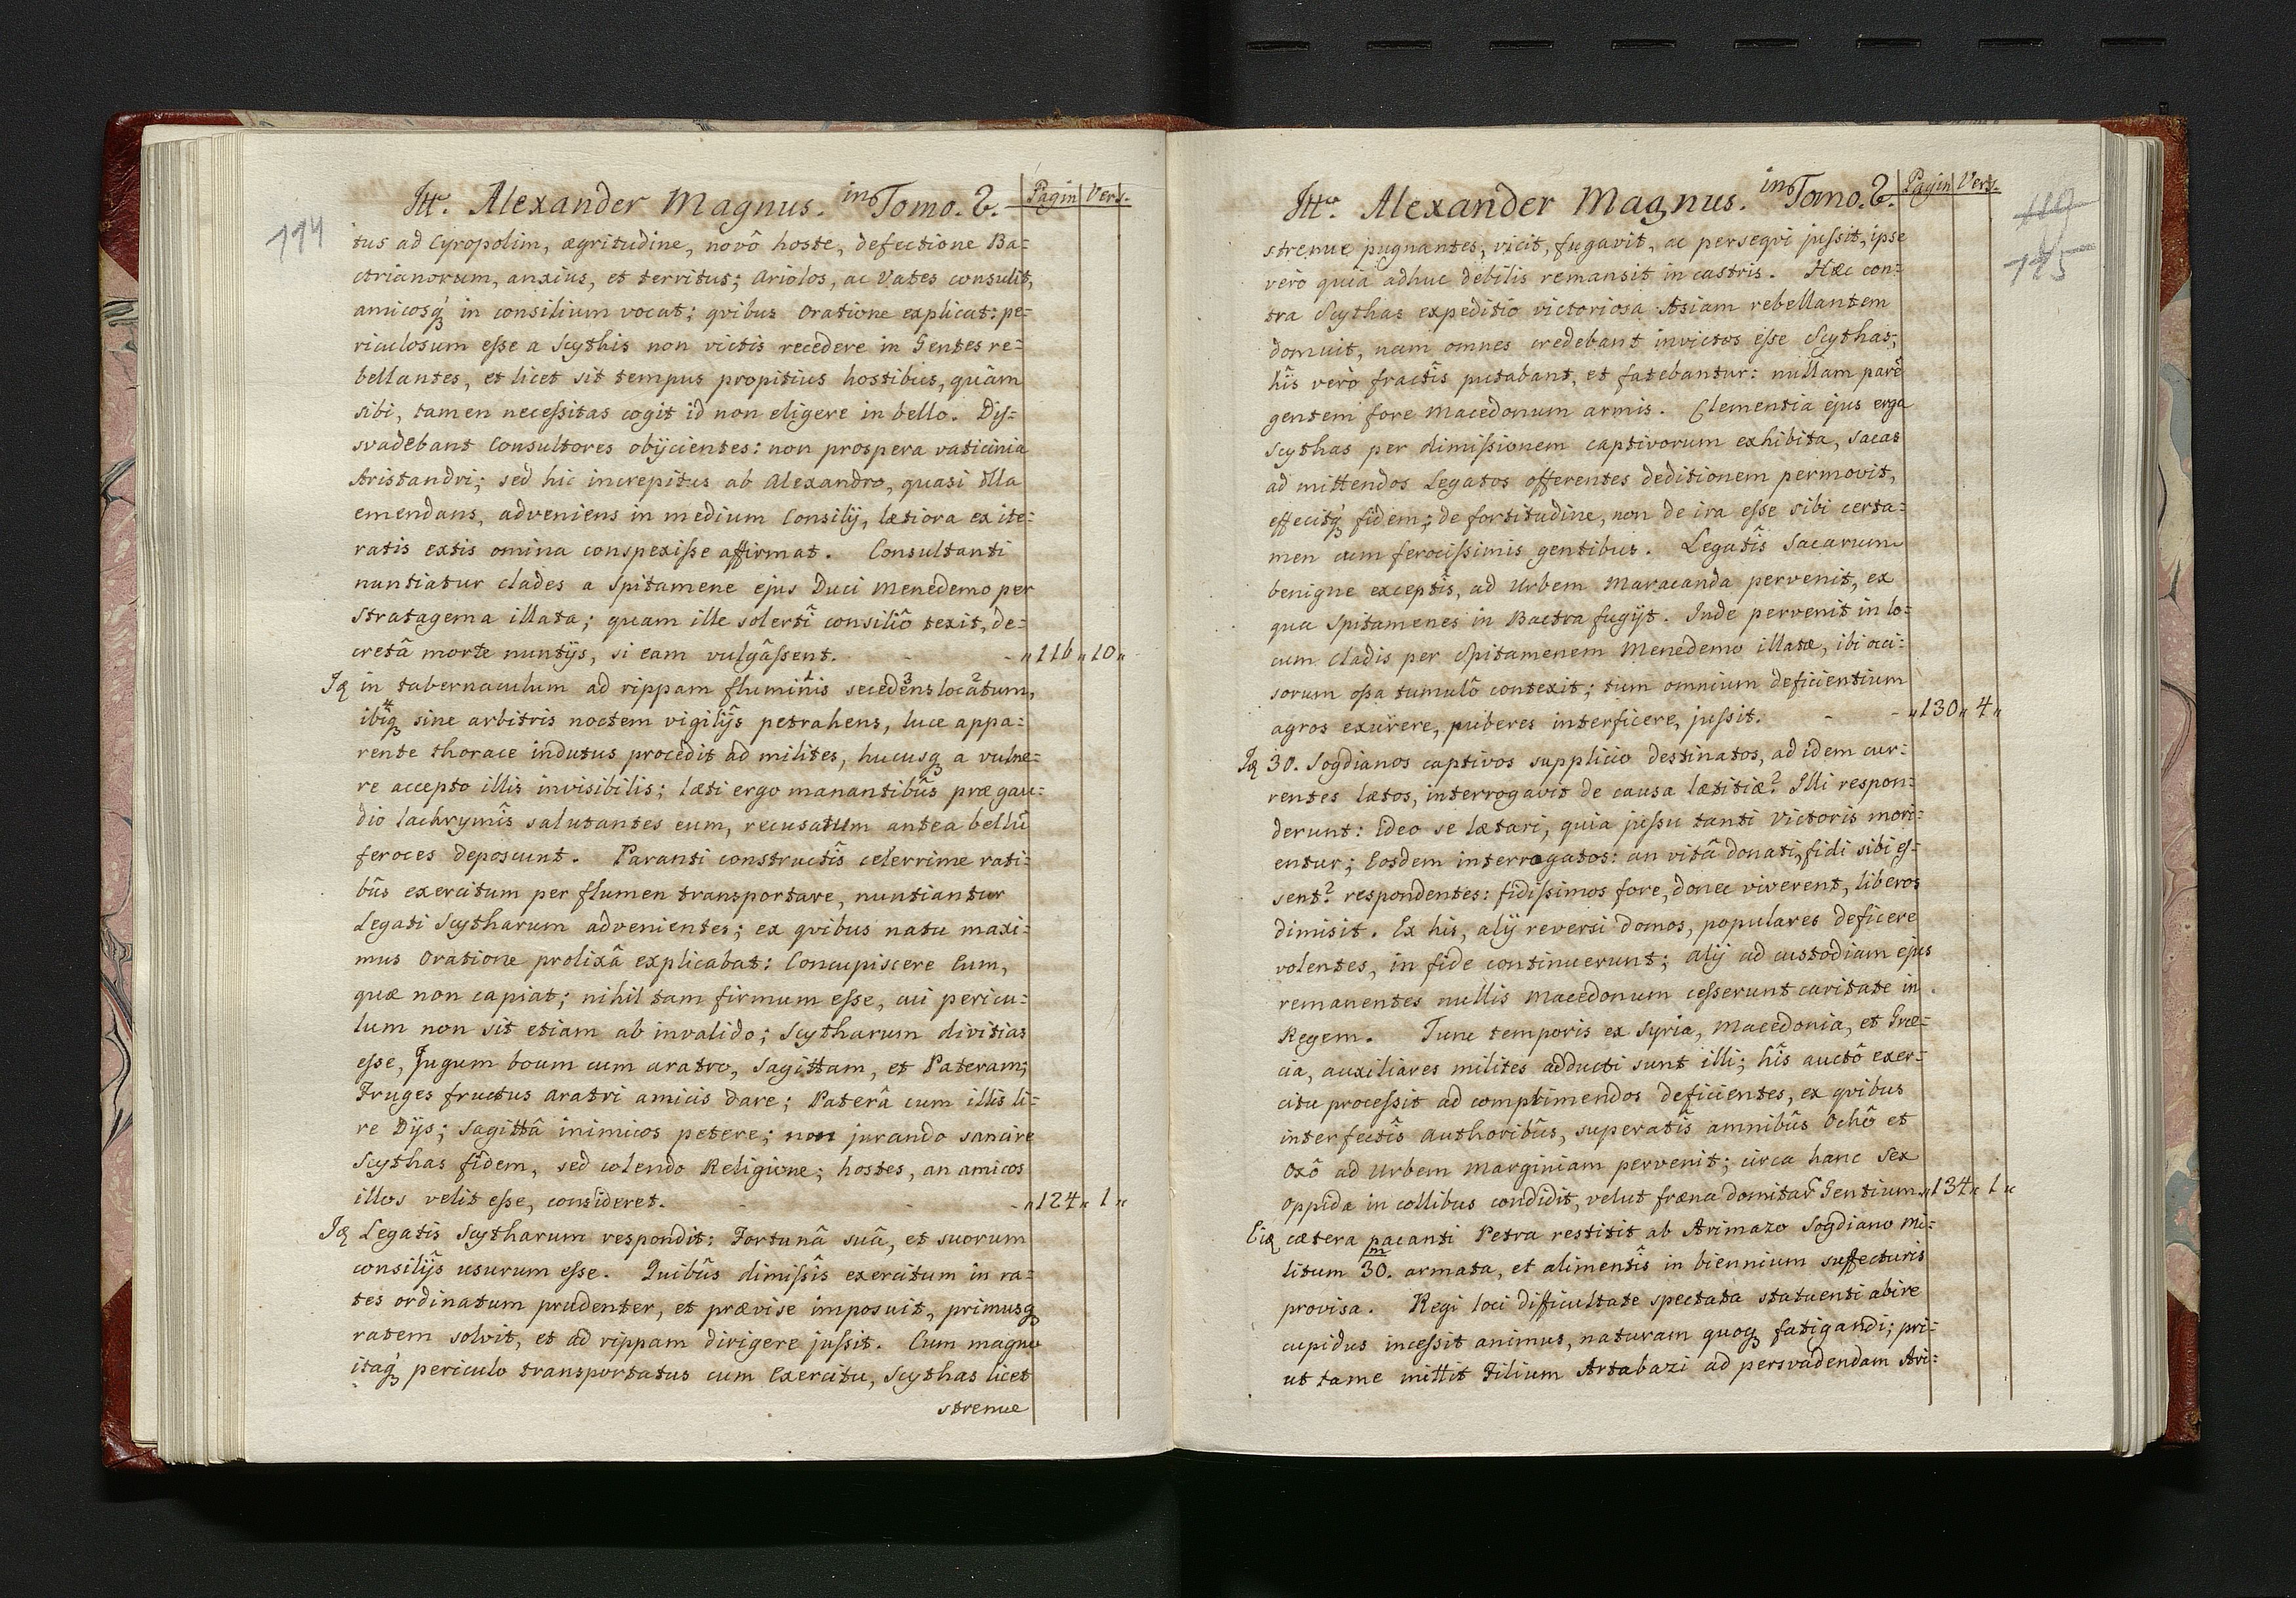 114
Itt. Alexander Magnus. in Tomo. 2. Pagin Vers.
tus ad Cyropolim, ægritudine, novô hoste, defectione Ba=
ctrianorum, anxius, et territus; Ariolos, ac Vates consulit,
amicosq́ in consilium vocat; qvibus Oratione explicat: pe=
riculosum esse a Scythis non victis recedere in Gentes re=
bellantes, et licet sit tempus propitius hostibus, quâm
sibi, tamen necessitas cogit id non eligere in bello. Dis=
svadebant Consultores obijcientes: non prospera vaticinia
Aristandri; sed hic increpitus ab Alexandro, quasi illa
emendans, adveniens in medium Consilij, lætiora ex ite=
ratis extis omina conspexisse affirmat. Consultanti
nuntiatur clades a Spitamene ejus Duci Menedemo per
stratagema illata; quam ille solertî consiliô texit, de=
cretâ morte nuntijs, si eam vulgâssent. - - „116„10„
Iq in tabernaculum ad rippam fluminis secedens locatum,
ibiq sine arbitris noctem vigilijs petrahens, luce appa=
rente thorace indutus procedit ad milites, hucusq a vulne=
re accepto illis invisibilis; læti ergo manantibûs præ gau=
dio lachrymîs salutantes eum, recusatum antea bellū
feroces deposcunt. Paranti constructîs celerrime rati=
bûs exercitum per flumen transportare, nuntiantur
Legati Scytharum advenientes; ex qvibus natu maxi=
mus Oratione prolixâ explicabat: Concupiscere Eum,
quæ non capiat; nihil tam firmum esse, cui pericu=
lum non sit etiam ab invalido; Scytharum divitias
esse, Jugum boum cum aratro, Sagittam, et Pateram;
Fruges fructus aratri amicis dare; Paterâ cum illis li=
re Dijs; Sagittâ inimicos petere; non jurando sancire
Scythas fidem, sed colendo Religione; hostes, an amicos
illos velit esse, consideret. - - - „124„1„
Iq Legatis Scytharum respondit: Fortunâ suâ, et suorum
consilijs usurum esse. Quibûs dimissîs exercitum in ra=
tes ordinatum prudenter, et prævise imposuit, primusq
ratem solvit, et ad rippam dirigere jussit. Cum magno
itaq́ periculo transportatus cum Exercitu, Scythas licet
strenue
Itt. Alexander Magnus. in Tomo. 2. Pagin Vers.
119
115
strenue pugnantes, vicit, fugavit, ac persequi jussit, ipse
verò quia adhuc debilis remansit in castris. Hæc con=
tra Scythas expeditio victoriosa Asiam rebellantem
domuit, nam omnes credebant invictos esse Scythas;
hîs verò fractîs putabant, et fatebantur: nullam parē
gentem fore Macedonum armis. Clementia ejus erga
Scythas per dimissionem captivorum exhibita, Sacas
ad mittendos Legatos offerentes deditionem permovit,
effecitq́ fidem; de fortitudine, non de ira esse sibi certa=
men cum ferocissimis gentibus. Legatîs Sacarum
benigne exceptis, ad Urbem Maracanda pervenit, ex
qua Spitamenes in Bactra fugijt. Inde pervenit in lo=
cum Cladis per Spitamenem Menedemo illatæ, ibi occi=
sorum ossa tumulô contexit; tum omnium deficientium
agros exurere, puberes interficere, jussit. - - „130„4„
Iq 30. Sogdianos captivos supplicio destinatos, ad idem cur=
rentes lætos, interrogavit de causa lætitiæ? Illi respon=
derunt: Ideo se lætari, quia jussu tanti Victoris mori=
entur; Eosdem interrogatos: an vitâ donati, fidi sibi es=
sent? respondentes: fidissimos fore, donec viverent, liberos
dimisit. Ex his, alij reversi domos, populares deficere
volentes, in fide continuerunt; alij ad custodiam ejus
remanentes nullis Macedonum cesserunt caritate in
Regem. Tunc temporis ex Syria, Macedonia, et Græ=
cia, auxiliares milites adducti sunt illi; hîs auctô exer=
citu processit ad comprimendos deficientes, ex qvibus
interfectîs Authoribûs, superatîs amnibûs Ochô et
Oxô ad Urbem Marginiam pervenit; circa hanc Sex
Oppida in collibus condidit, velut fræna domitar̄ Gentium „134„1„
Eiq cætera pacanti Petra restitit ab Arimazo Sogdiano mi=
litum 30.m armata, et alimentîs in biennium suffecturis
provisa. Regi loci difficultate spectata statuenti abire
cupidus incessit animus, naturam quoq fatigandi; pri=
ut tame mittit Filium Artabazi ad persvadendam Ari=